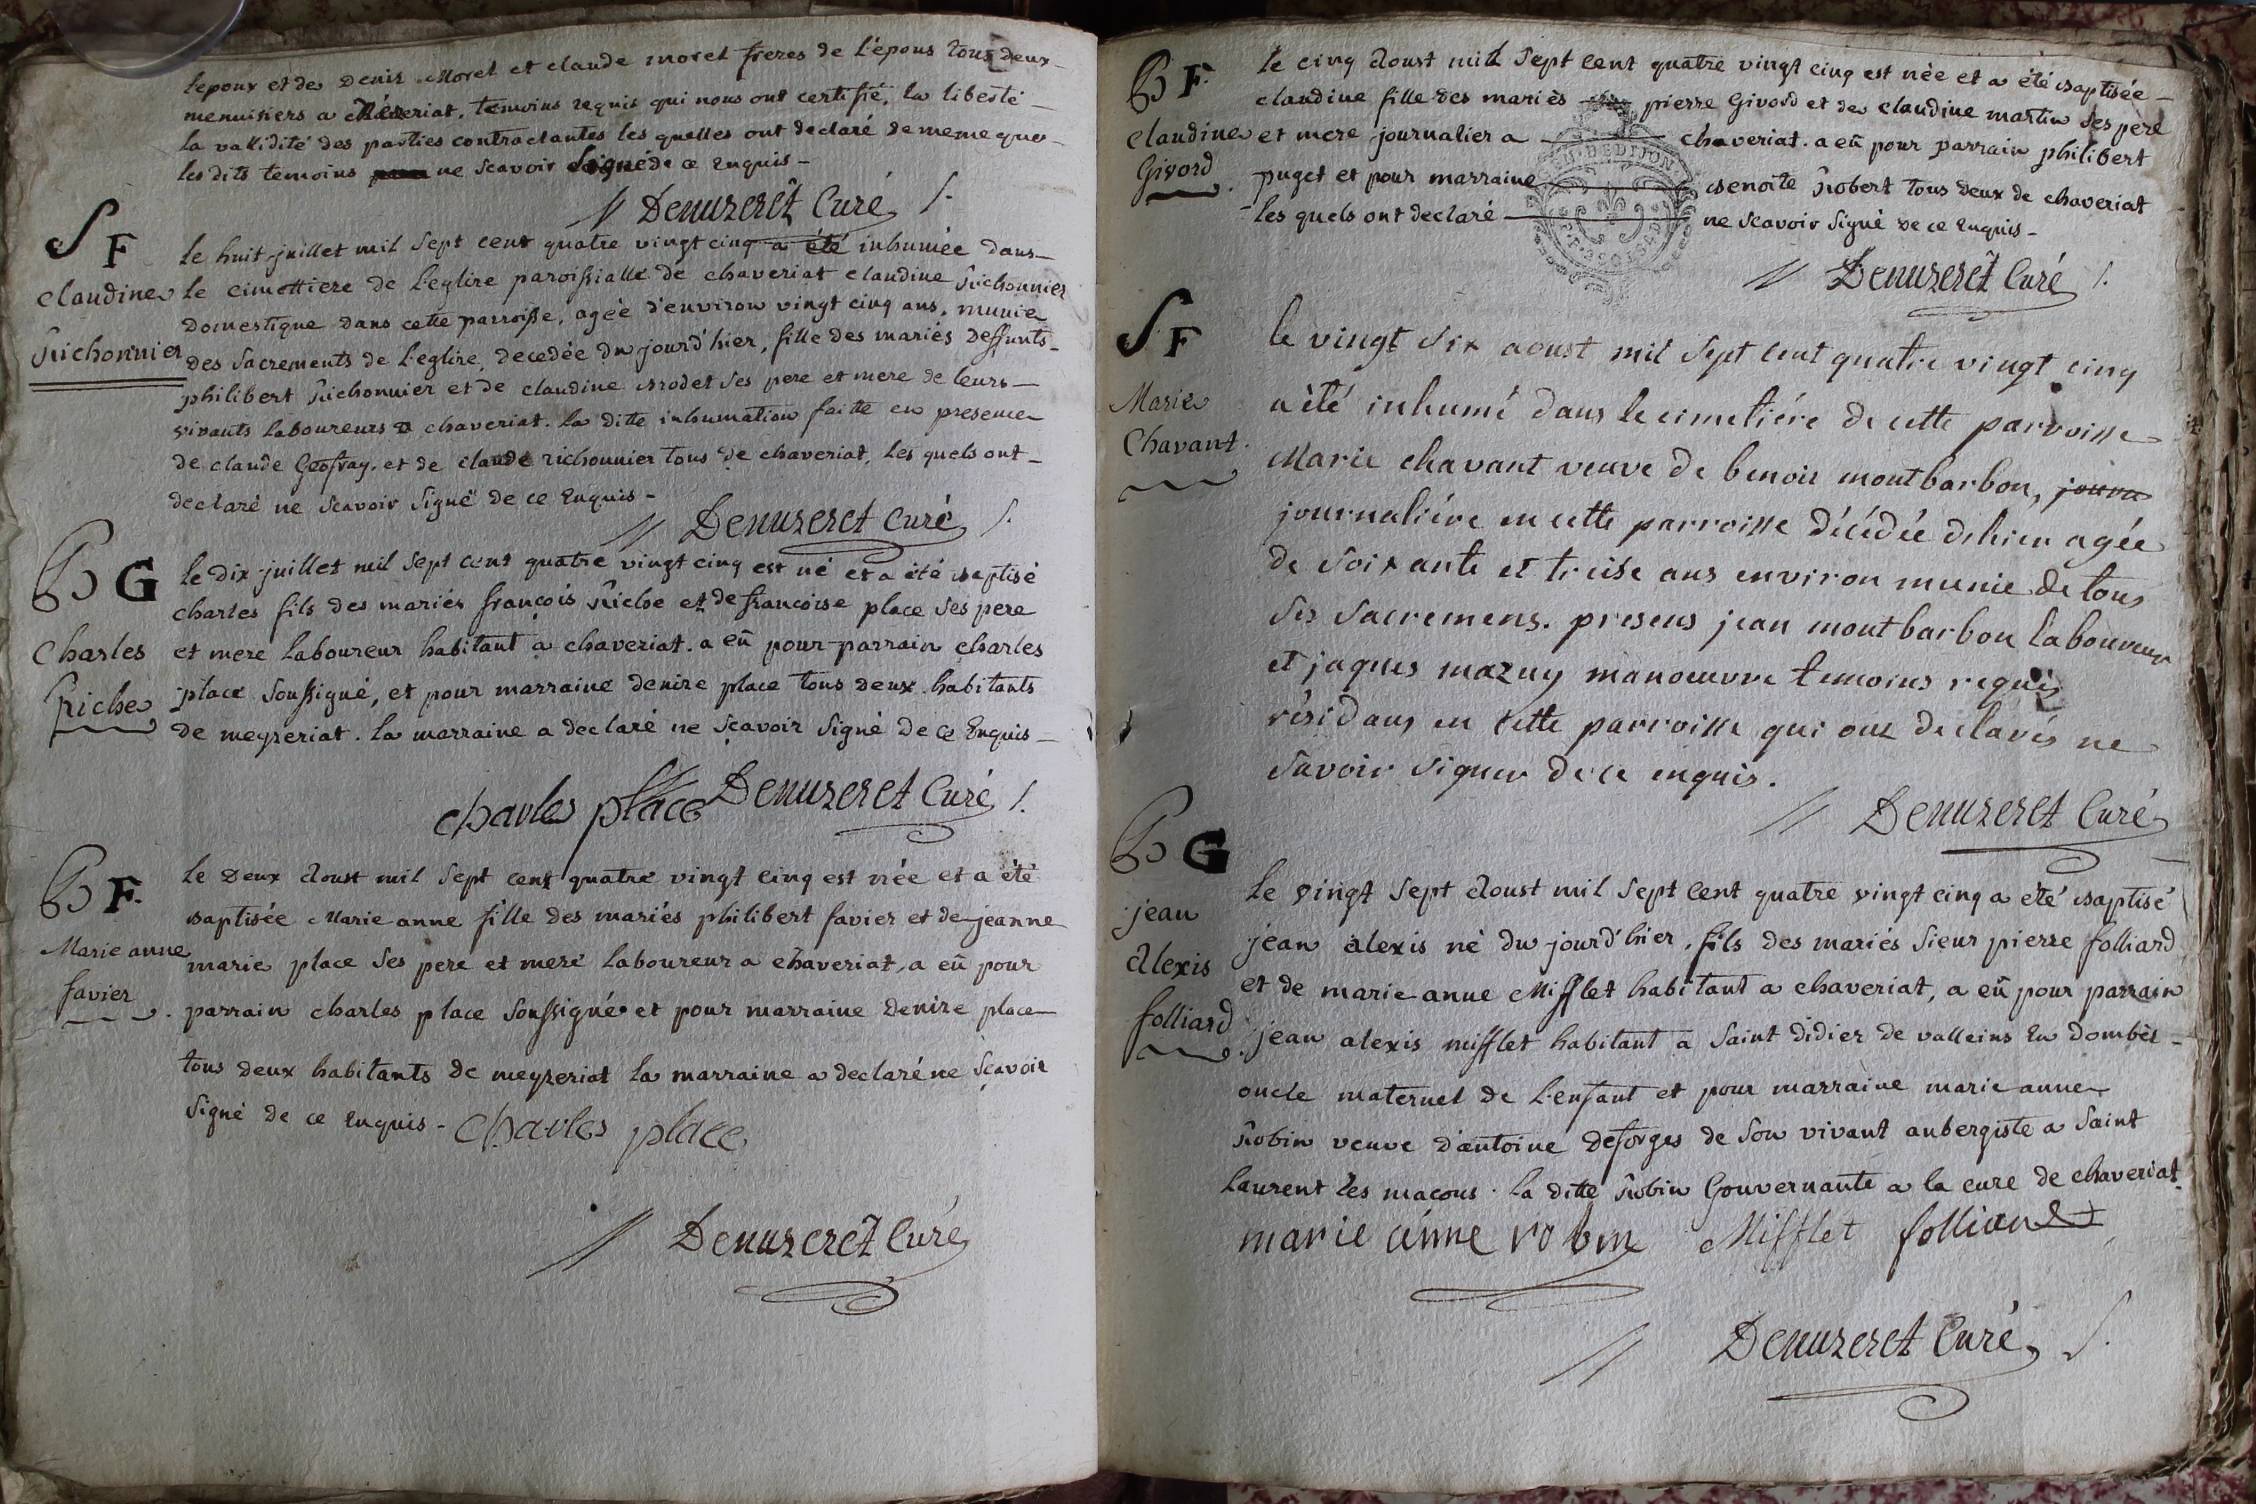 lepoux et de Denis Morel et claude morel freres de l'épous tous deux
menuisiers a chaveriat, temoins requis qui nous ont certifié, la liberté
la vallidité des parties contractantes les quelles ont declaré de meme que
les dits temoins ne scavoir Signé de ce Enquis
Denuzeret Curé
S F
claudine
Richonnier
le huit juillet mil sept cent quatre vingt cinq a été inhumée dans
le cimettiere de l'eglise paroissialle de chaveriat claudine Richonnier
domestique dans cette parroisse, agéé d'environ vingt cinq ans, munie
des Sacrements de l'eglise, decedée du jourd'hier, fille des mariés deffunts
philibert Richonnier et de claudine brodet ses pere et mere de leurs
vivants laboureurs a chaveriat. la ditte inhumation faitte en presence
de claude Geofray, et de claude richonnier tous de chaveriat, les quels ont
declaré ne scavoir signé de ce Enquis
Denuzeret curé
B G
Charles
Riche
le dix juillet mil sept cent quatre vingt cinq est né et a été baptisé
charles fils des mariés françois Riche et de francoise place ses pere
et mere laboureur habitant a chaveriat. a eû pour parrain charles
place soussigné, et pour marraine denise place tous deux habitants
de meyzeriat. la marraine a declaré ne scavoir signé de ce Enquis
charles place Denuzeret Curé
B F
Marie anne
favier
le Deux Aoust mil sept cent quatre vingt cinq est née et a été
baptisée Marie anne fille des mariés philibert favier et de jeanne
marie place ses pere et mere laboureur a chaveriat, a eû pour
parrain charles place soussigné et pour marraine denise place
tous deux habitants de meyzeriat la marraine a declaré ne scavoir
signé de ce Enquis - charles place
Denuzeret Curé
B F
claudine
Givord
le cinq Aoust mil sept cent quatre vingt cinq est née et a été baptisée
claudine fille des mariés pierre Givord et de claudine martin ses pere
et mere journalier a chaveriat. a eû pour parrain philibert
puget et pour marraine benoite Robert tous deux de chaveriat
les quels ont declaré ne scavoir signé de ce Enquis
DEDIJON
Denuzeret Curé
S F
Marie
Chavant
le vingt six aoust mil sept cent quatre vingt cinq
a été inhumé dans le cimetiére de cette parroisse
Marie chavant veuve de benoir montbarbon,
journaliére en cette parroisse décédée dehier agée
de soixante et treise ans environ munie de tous
ses sacremens. presens jean montbarbon laboureur
et jaques mazuy manoeuvre temoins requis
résidans en cette parroisse qui ont declarés ne
savoir signer de ce enquis.
Denuzeret Curé
B G
jean
Alexis
folliard
le vingt sept Aoust mil sept cent quatre vingt cinq a été baptisé
jean alexis né du jourd'hier, fils des mariés sieur pierre folliard
et de marie anne Mifflet habitant a chaveriat, a eû pour parrain
jean alexis mifflet habitant a saint didier de valleins en dombes
oncle maternel de l'enfant et pour marraine marie anne
Robin veuve d'antoine deforges de son vivant aubergiste a saint
laurent les macons. la ditte Robin Gouvernante a la cure de chaveriat
marie anne robin Mifflet folliard
Denuzeret Curé